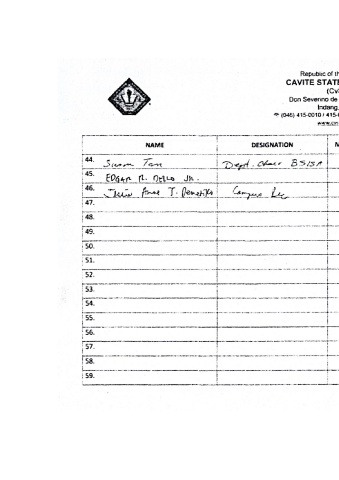 Republic of th
CAVITE STATE
(Cv
Don Severino de
Indang,
(046) 415-0010 / 415-
www.cv
NAME DESIGNATION N
44. Susan Tan Dept. Chair BSISA
45. EDGAR R. MELLO JR.
46. Anne T. Campus
47.
48.
49.
50.
51.
52.
53.
54.
55.
56.
57.
58.
59.